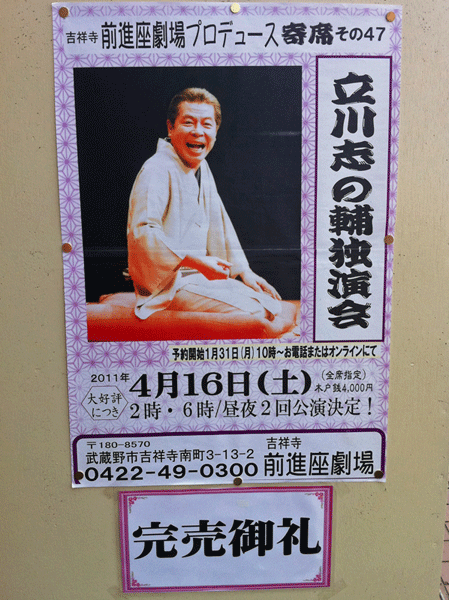 吉祥寺 前進座劇場プロデュース 寄席 その47
立川志の輔独演会
予約開始1月31日(月)10時〜お電話またはオンラインにて
2011年 4月16日(土) (全席指定) 木戸銭4,000円
大好評につき 2時・6時/昼夜2回公演決定!
〒180-8570
武蔵野市吉祥寺南町3-13-2
0422-49-0300
吉祥寺
前進座劇場
完売御礼